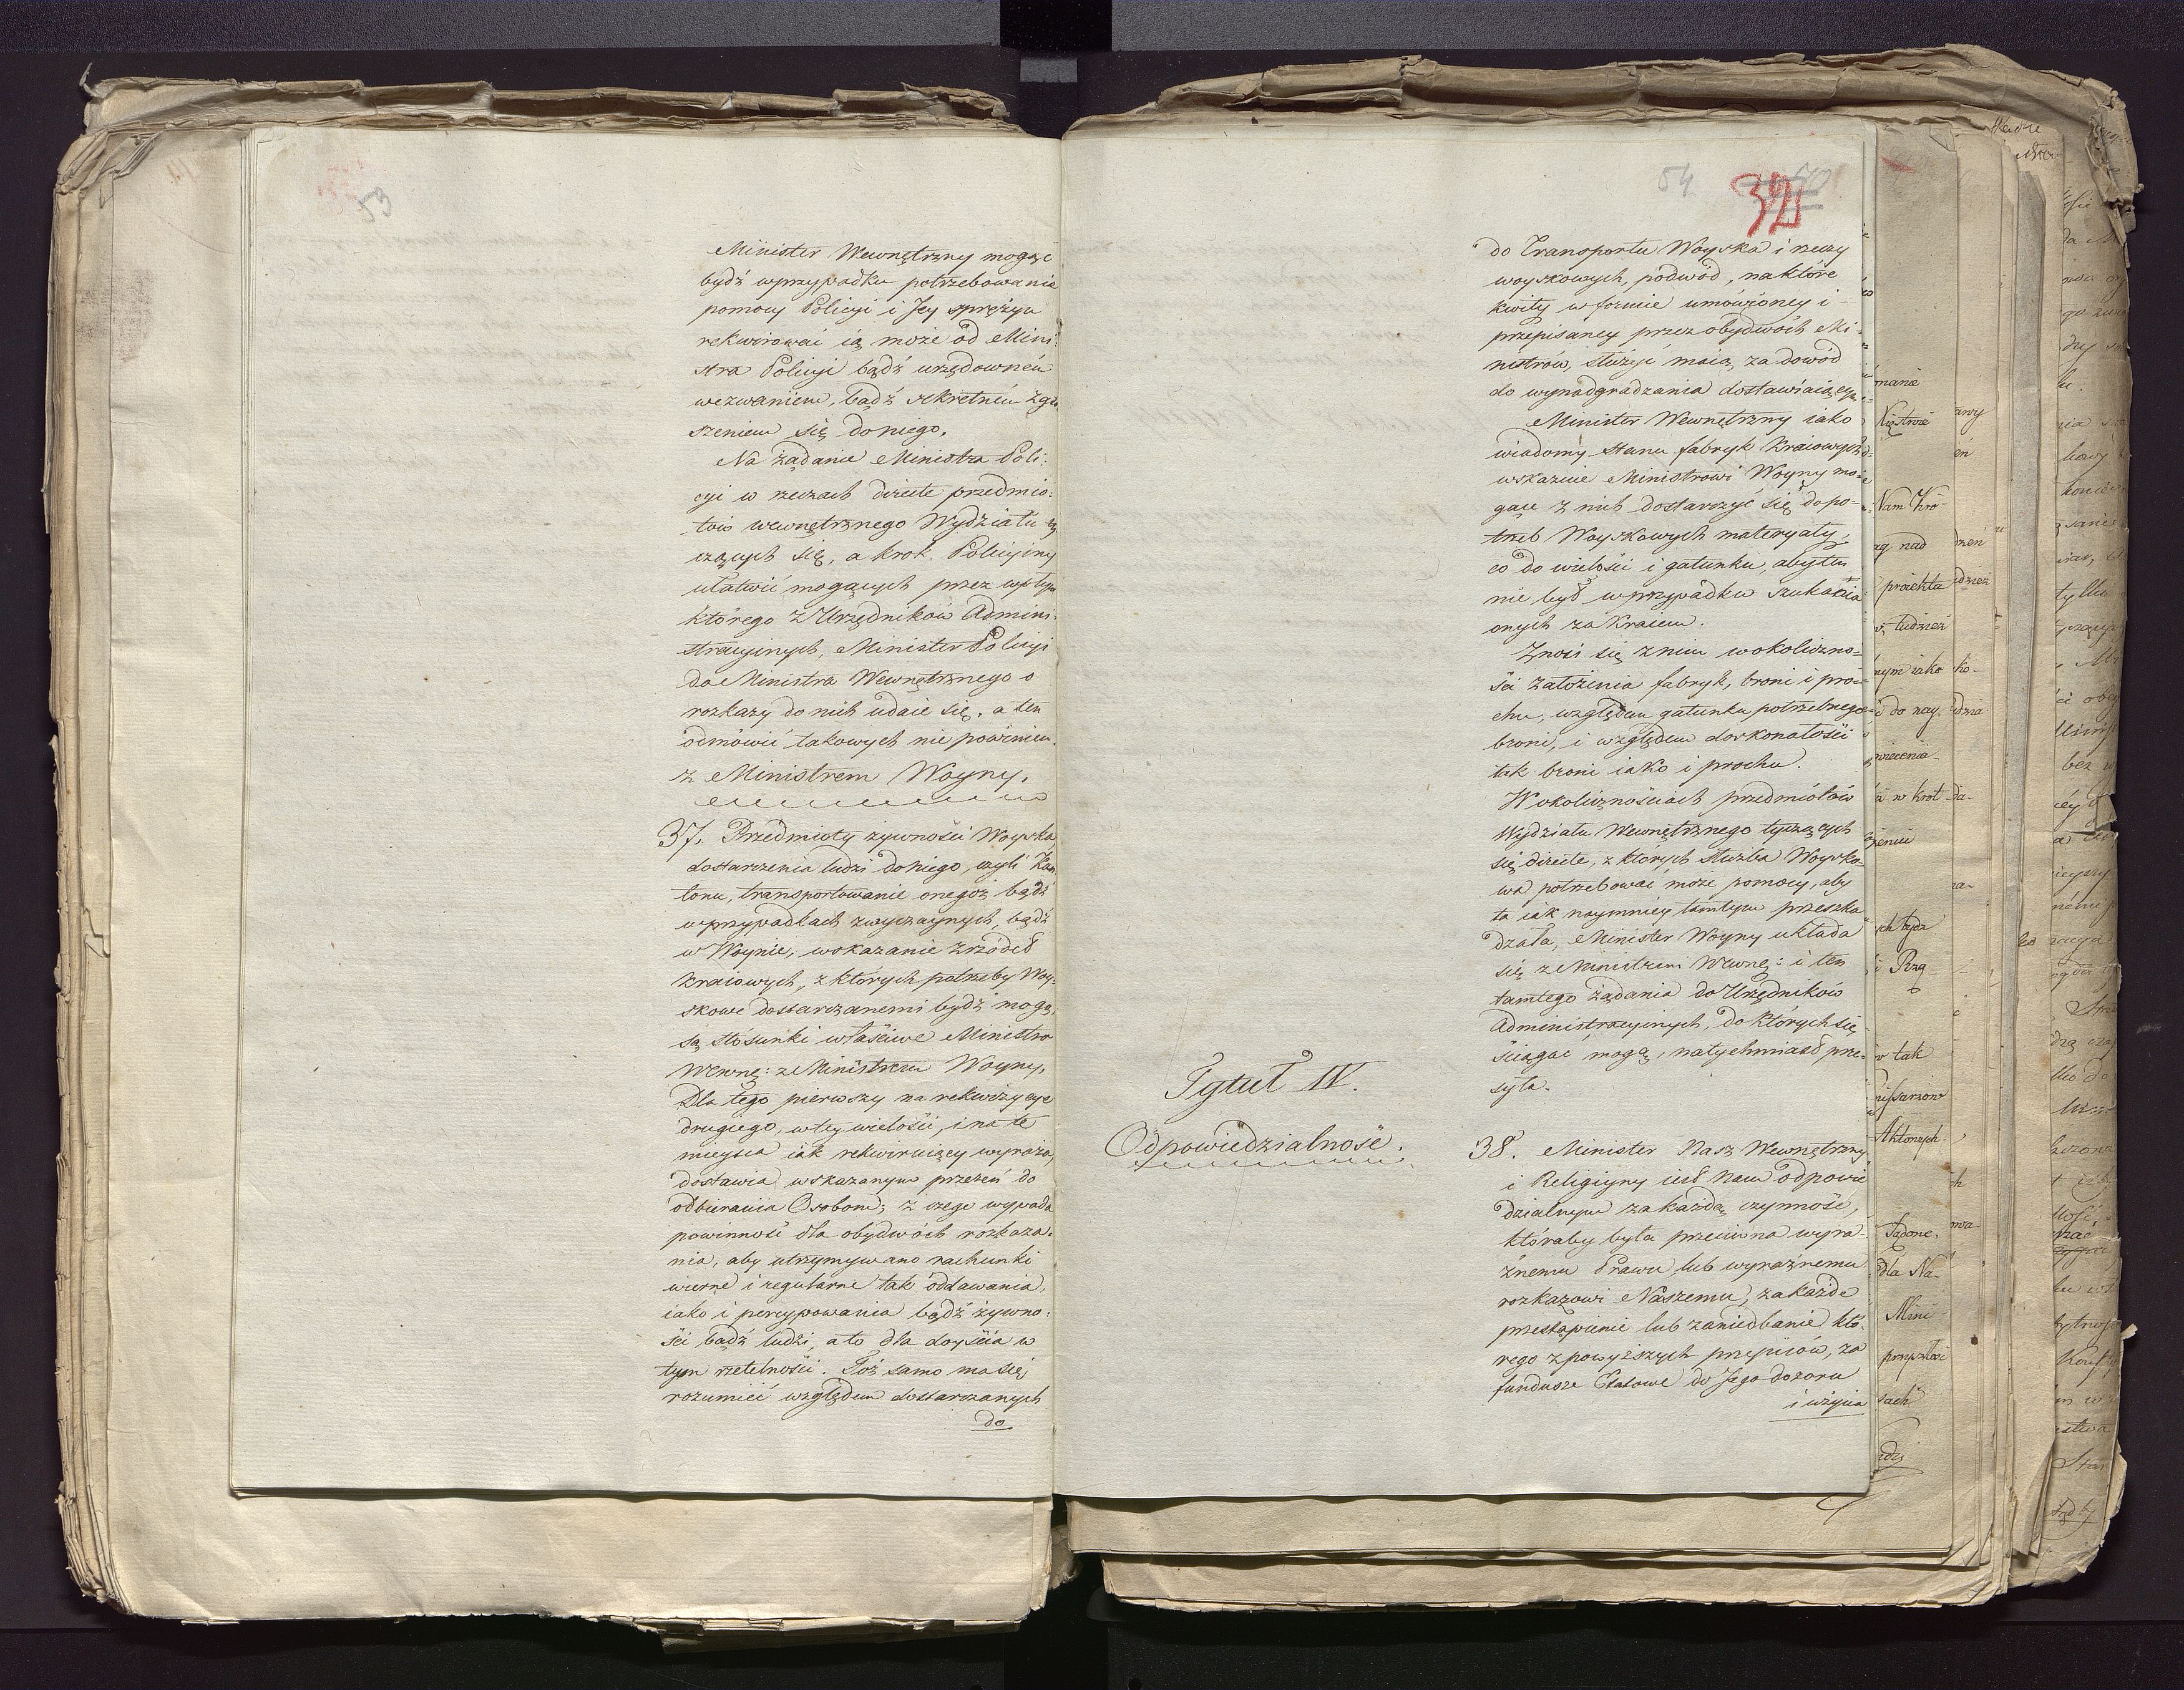 53
Minister Wewnętrzny mogąc
bydź w przypadku potrzebowania
pomocy Policyi i Jey sprężyn
rekwirować ią może od Mini:
stra Policyi bądź urzędowném
wezwaniem, bądź sekretném zgło
szeniem się do niego.
Na żądanie Ministra Poli:
cyi w rzeczach directe przedmio:
tów wewnętrznego Wydziału ty
czących się, a krok Policyiny
ułatwić mogących przez wpływ
którego z Urzędników Admini:
stracyinych, Minister Policyi
do Ministra Wewnętrznego o
rozkazy do nich udaie się, a ten
odmówić takowych nie powinien.
z Ministrem Woyny.
37. Przedmioty żywności Woyska,
dostarczenia ludzi do niego, czyli Kan
tonu, transportowanie onegoż bądź
w przypadkach zwyczaynych, bądź
w Woynie, wskazanie zrzódeł
kraiowych, z których potrzeby Woy:
skowe dostarczanemi bydź mogą,
są stosunki właściwe Ministra
Wewnę: z Ministrem Woyny.
Dla tego pierwszy na rekwizycye
drugiego, w tey wielości, i na te
mieysca iak rekwiruiący wyraża,
dostawia wskazanym przezeń do
odbierania Osobom; z czego wypada
powinność dla obydwóch rozkaza:
nia, aby utrzymywano rachunki
wierne i regularne tak oddawania,
iako i percypowania bądź żywno:
ści bądź ludzi, a to dla doyścia w
tym rzetelności. Toż samo ma się
rozumieć względem dostarczanych
do
54
32
do Transportu Woyska i rzeczy
woyskowych, podwód, na które
kwity w formie umówioney i
przepisaney przez obydwóch Mi:
nistrów, służyć maią za dowód
do wynadgradzania dostawiaiącym
Minister Wewnętrzny iako
wiadomy stanu fabryk Kraiowych
wskazuie Ministrowi Woyny mo:
gące z nich dostarczyć się do po=
trzeb Woyskowych materyały,
co do wielości i gatunku, aby ten
nie był w przypadku szukania
onych za kraiem.
Znosi się z nim w okoliczno=
ści założenia fabryk, broni i pro=
chu, względem gatunku potrzebnego
broni, i względem doskonałości
tak broni iako i prochu.
W okolicznościach przedmiotów
Wydziału Wewnętrznego tyczących
się directe, z których służba Woysko:
wa potrzebować może pomocy, aby
ta iak naymniey tamtym przeszka
dzała, Minister Woyny układa
się z Ministrem Wewnę: i ten
tamtego żądania do Urzędników
Administracyinych, do których się
ściągać mogą, natychmiast prze:
syła.
Tytuł IV.
Odpowiedzialność.
38. Minister Nasz Wewnętrzny
i Religiyny iest Nam odpowie
dzialnym za każdą czynność,
któraby była przeciwna wyra=
źnemu Prawu, lub wyraźnemu
rozkazowi Naszemu, za każde
przestąpienie lub zaniedbanie któ:
rego z powyższych przepisów, za
fundusze Etatowe do Jego dozoru
i użycia